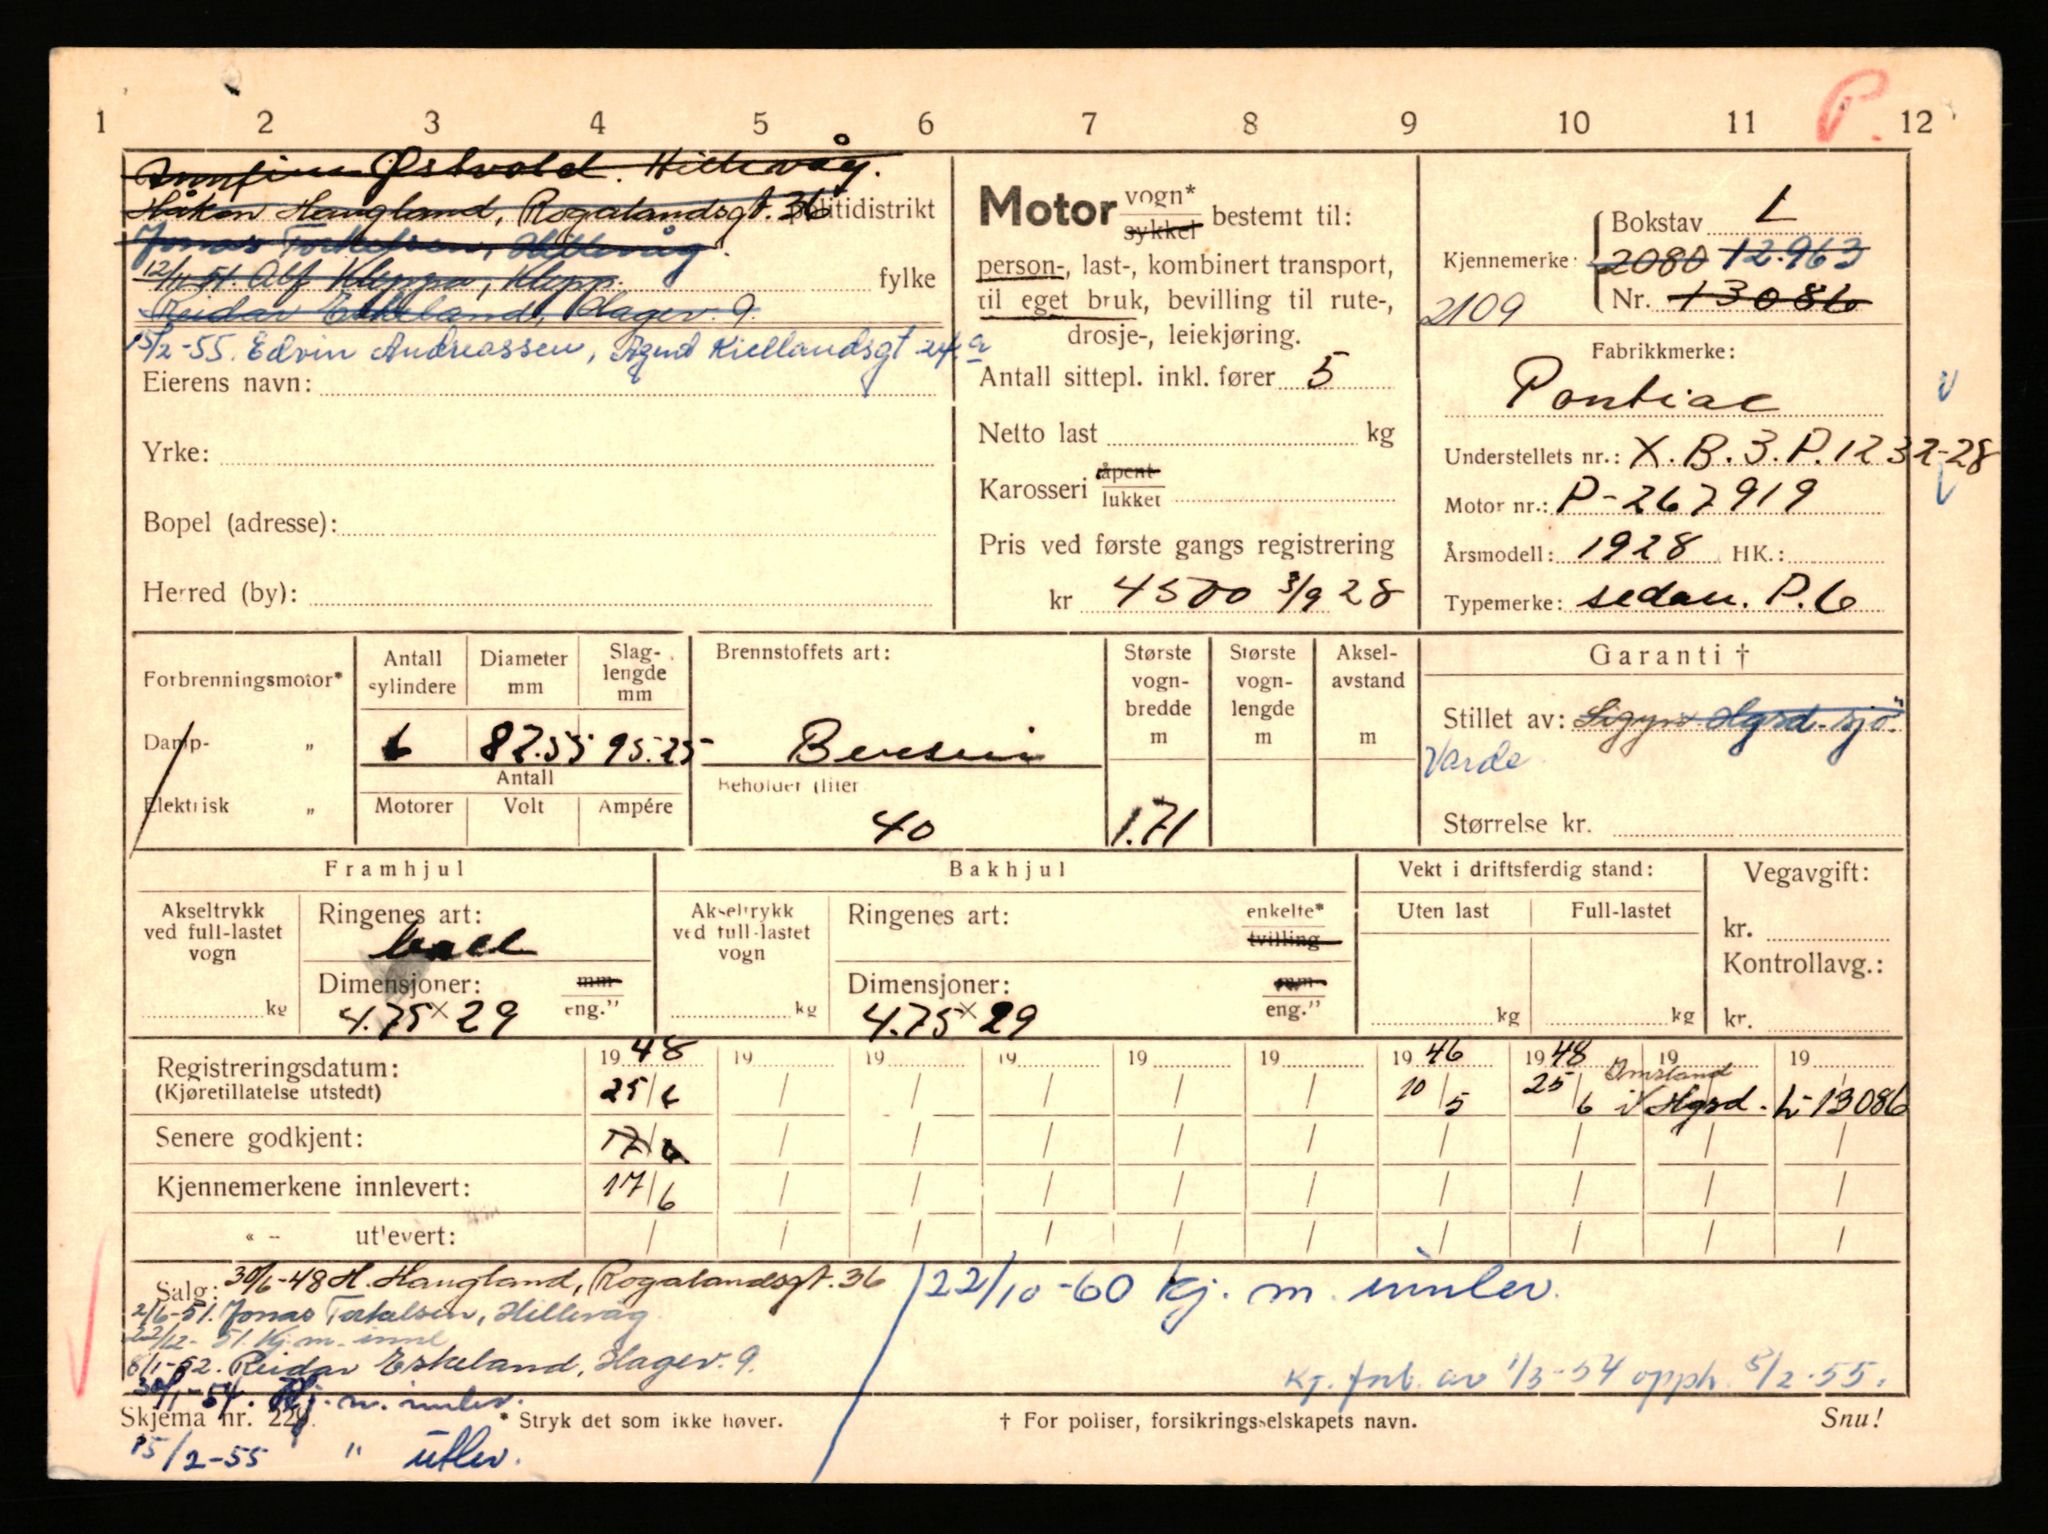 1 2 3 4 5 6 7 8 9 10 11 P. 12
Østvold. Hillevåg.
Håkon Haugland, Rogalandsgt. 36 politidistrikt
Jonas Torkelsen, Hillevåg.
12/11 51. Alf Kleppa, Klepp. fylke
Reidar Eskeland, Hagev. 9.
15/2-55. Edvin Andreassen, Agend Kiellandsgt. 24 a
Eierens navn:
Yrke:
Bopel (adresse):
Herred (by):
Motor vogn*
sykkel bestemt til:
person-, last-, kombinert transport,
til eget bruk, bevilling til rute-,
drosje-, leiekjøring.
Antall sittepl. inkl. fører 5
Netto last kg
Karosseri åpent
lukket
Pris ved første gangs registrering
kr 4500 3/9 28
Bokstav L
Kjennemerke: 2080 12.963
2109 Nr. 13086
Fabrikkmerke:
Pontiac
Understellets nr.: X.B.3.P.1232-28
Motor nr.: P-267919
Årsmodell: 1928 HK.:
Typemerke: sedan. P.6
Forbrenningsmotor*
Damp- „
Elektrisk „
Antall sylindere
Diameter mm
Slag-lengde mm
6 82.55 95.25
Antall
Motorer Volt Ampére
Brennstoffets art:
Bensin
Beholder (liter
40
Største vogn-bredde m
1.71
Største vogn-lengde m
Aksel-avstand m
Garanti †
Stillet av: Sigyn Hgsd-sjø
Varde
Størrelse kr.
Framhjul
Akseltrykk ved full-lastet vogn
kg
Ringenes art:
Dimensjoner: mm
4.75 x 29 eng."
Bakhjul
Akseltrykk ved full-lastet vogn
kg
Ringenes art: enkelte*
tvilling
Dimensjoner: mm
4.75 x 29 eng."
Vekt i driftsferdig stand:
Uten last Full-lastet
kg kg
Vegavgift:
kr.
Kontrollavg.:
kr.
Registreringsdatum: 19 48 19 19 19 19 19 19 46 19 48 19 19
(Kjøretillatelse utstedt) 25/6 / / / / / 10/5 25/6 Omsland i Hgsd. L-13086
Senere godkjent: 17/6 / / / / / / / / /
Kjennemerkene innlevert: 17/6 / / / / / / / / /
« - utlevert: / / / / / / / / / /
Salg: 30/6-48 H. Haugland, Rogalandsgt. 36
2/6-51. Jonas Torkelsen, Hillevåg
22/12-51. Kj. m. innl
8/1-52. Reidar Eskeland, Hagev. 9.
30/1-54. Kj. m. innlev.
22/10-60 kj. m. innlev.
Kj. forb. av 1/3-54 opph. 5/2-55.
Skjema nr. 229. * Stryk det som ikke høver. † For poliser, forsikringsselskapets navn. Snu!
15/2-55 " utlev.